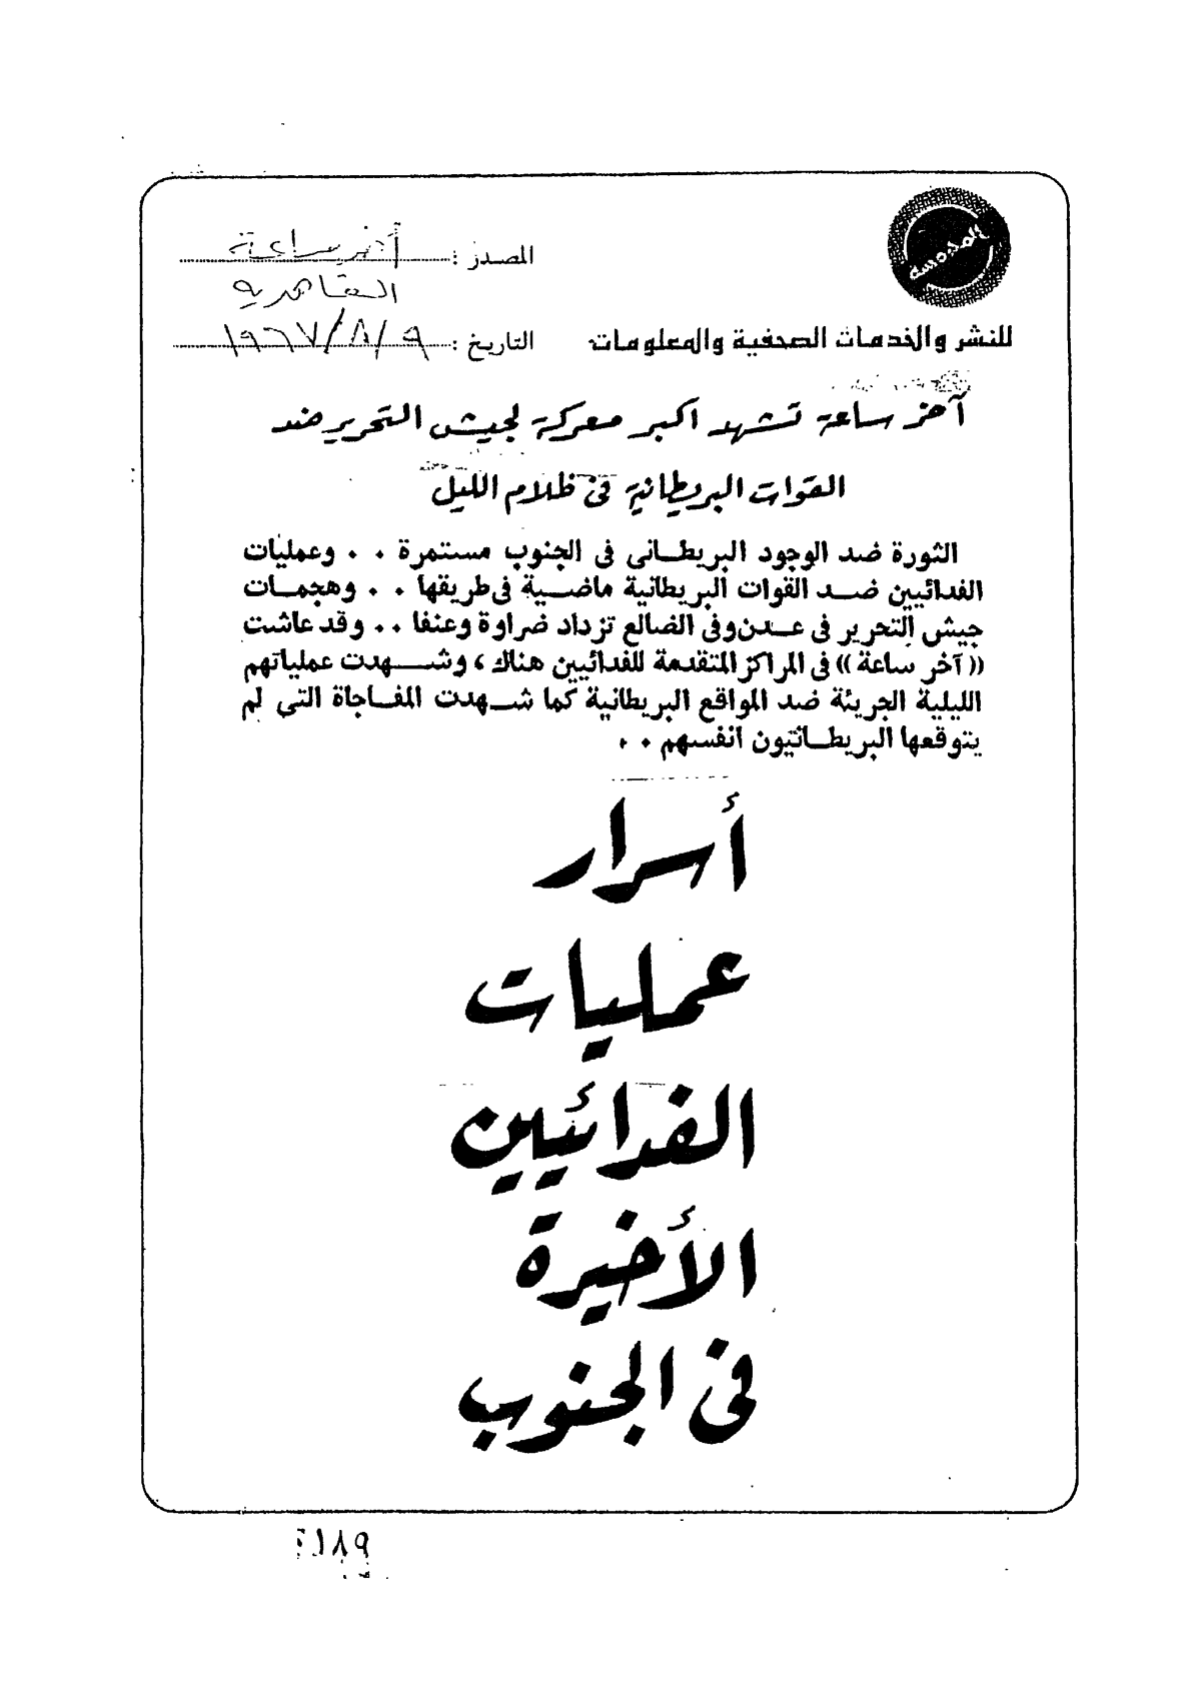 المحروسة
المصدر : أخر ساعة
القاهرية
للنشر والخدمات الصحفية والمعلومات
التاريخ : ٩/٨/١٩٦٧
آخر ساعة تشهد اكبر معركة لجيش التحرير ضد
القوات البريطانية فى ظلام الليل
الثورة ضد الوجود البريطانى فى الجنوب مستمرة .. وعمليات
الفدائيين ضد القوات البريطانية ماضية فى طريقها .. وهجمات
جيش التحرير فى عدن وفى الضالع تزداد ضراوة وعنفا .. وقد عاشت
((آخر ساعة)) فى المراكز المتقدمة للفدائيين هناك ، وشهدت عملياتهم
الليلية الجريئة ضد المواقع البريطانية كما شهدت المفاجاة التى لم
يتوقعها البريطانيون انفسهم ..
أسرار
عمليات
الفدائيين
الأخيرة
فى الجنوب